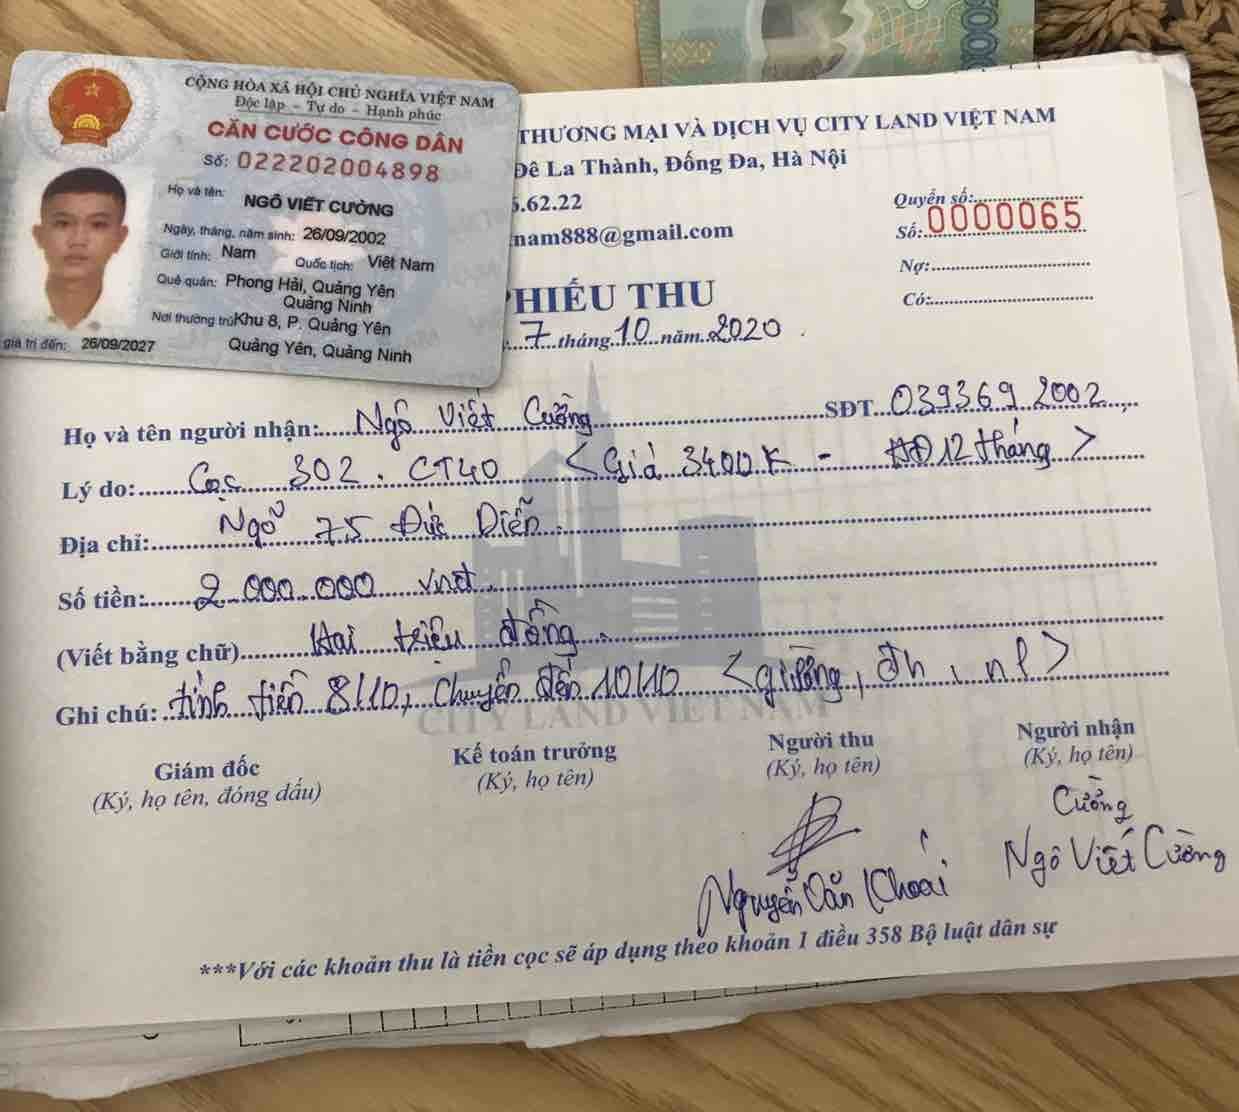 CỘNG HÒA XÃ HỘI CHỦ NGHĨA VIỆT NAM
Độc lập - Tự do - Hạnh phúc
CĂN CƯỚC CÔNG DÂN
Số: 022202004898
Họ và tên: NGÔ VIẾT CƯỜNG
Ngày, tháng, năm sinh: 26/09/2002
Giới tính: Nam Quốc tịch: Việt Nam
Quê quán: Phong Hải, Quảng Yên
Quảng Ninh
Nơi thường trú: Khu 8, P. Quảng Yên
Quảng Yên, Quảng Ninh
giá trị đến: 26/09/2027
THƯƠNG MẠI VÀ DỊCH VỤ CITY LAND VIỆT NAM
Đê La Thành, Đống Đa, Hà Nội
5.62.22
nam888@gmail.com
Quyển số:
Số: 0000065
Nợ:
Có:
PHIẾU THU
7 tháng 10 năm 2020
Họ và tên người nhận: Ngô Viết Cường SĐT 0393692002
Lý do: Cọc 302. CT40 <Giá 3400K - HĐ 12 tháng>
Địa chỉ: Ngõ 75 Đức Diễn
Số tiền: 2.000.000 vnđ
(Viết bằng chữ) Hai triệu đồng
Ghi chú: tính tiền 8/10, chuyển đến 10/10 <giường, đh, nl>
CITY LAND VIET NAM
Giám đốc
(Ký, họ tên, đóng dấu)
Kế toán trưởng
(Ký, họ tên)
Người thu
(Ký, họ tên)
Nguyễn Văn Khoái
Người nhận
(Ký, họ tên)
Cường
Ngô Viết Cường
***Với các khoản thu là tiền cọc sẽ áp dụng theo khoản 1 điều 358 Bộ luật dân sự